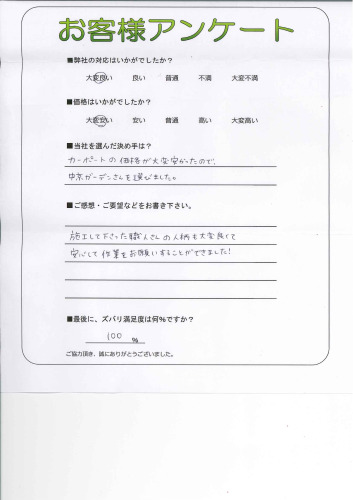 お客様アンケート
■弊社の対応はいかがでしたか？
大変良い 良い 普通 不満 大変不満
■価格はいかがでしたか？
大変安い 安い 普通 高い 大変高い
■当社を選んだ決め手は？
カーポートの価格が大変安かったので、
中京ガーデンさんを選びました。
■ご感想・ご要望などをお書き下さい。
施工して下さった職人さんの人柄も大変良くて
安心して作業をお願いすることができました！
■最後に、ズバリ満足度は何％ですか？
100 ％
ご協力頂き、誠にありがとうございました。